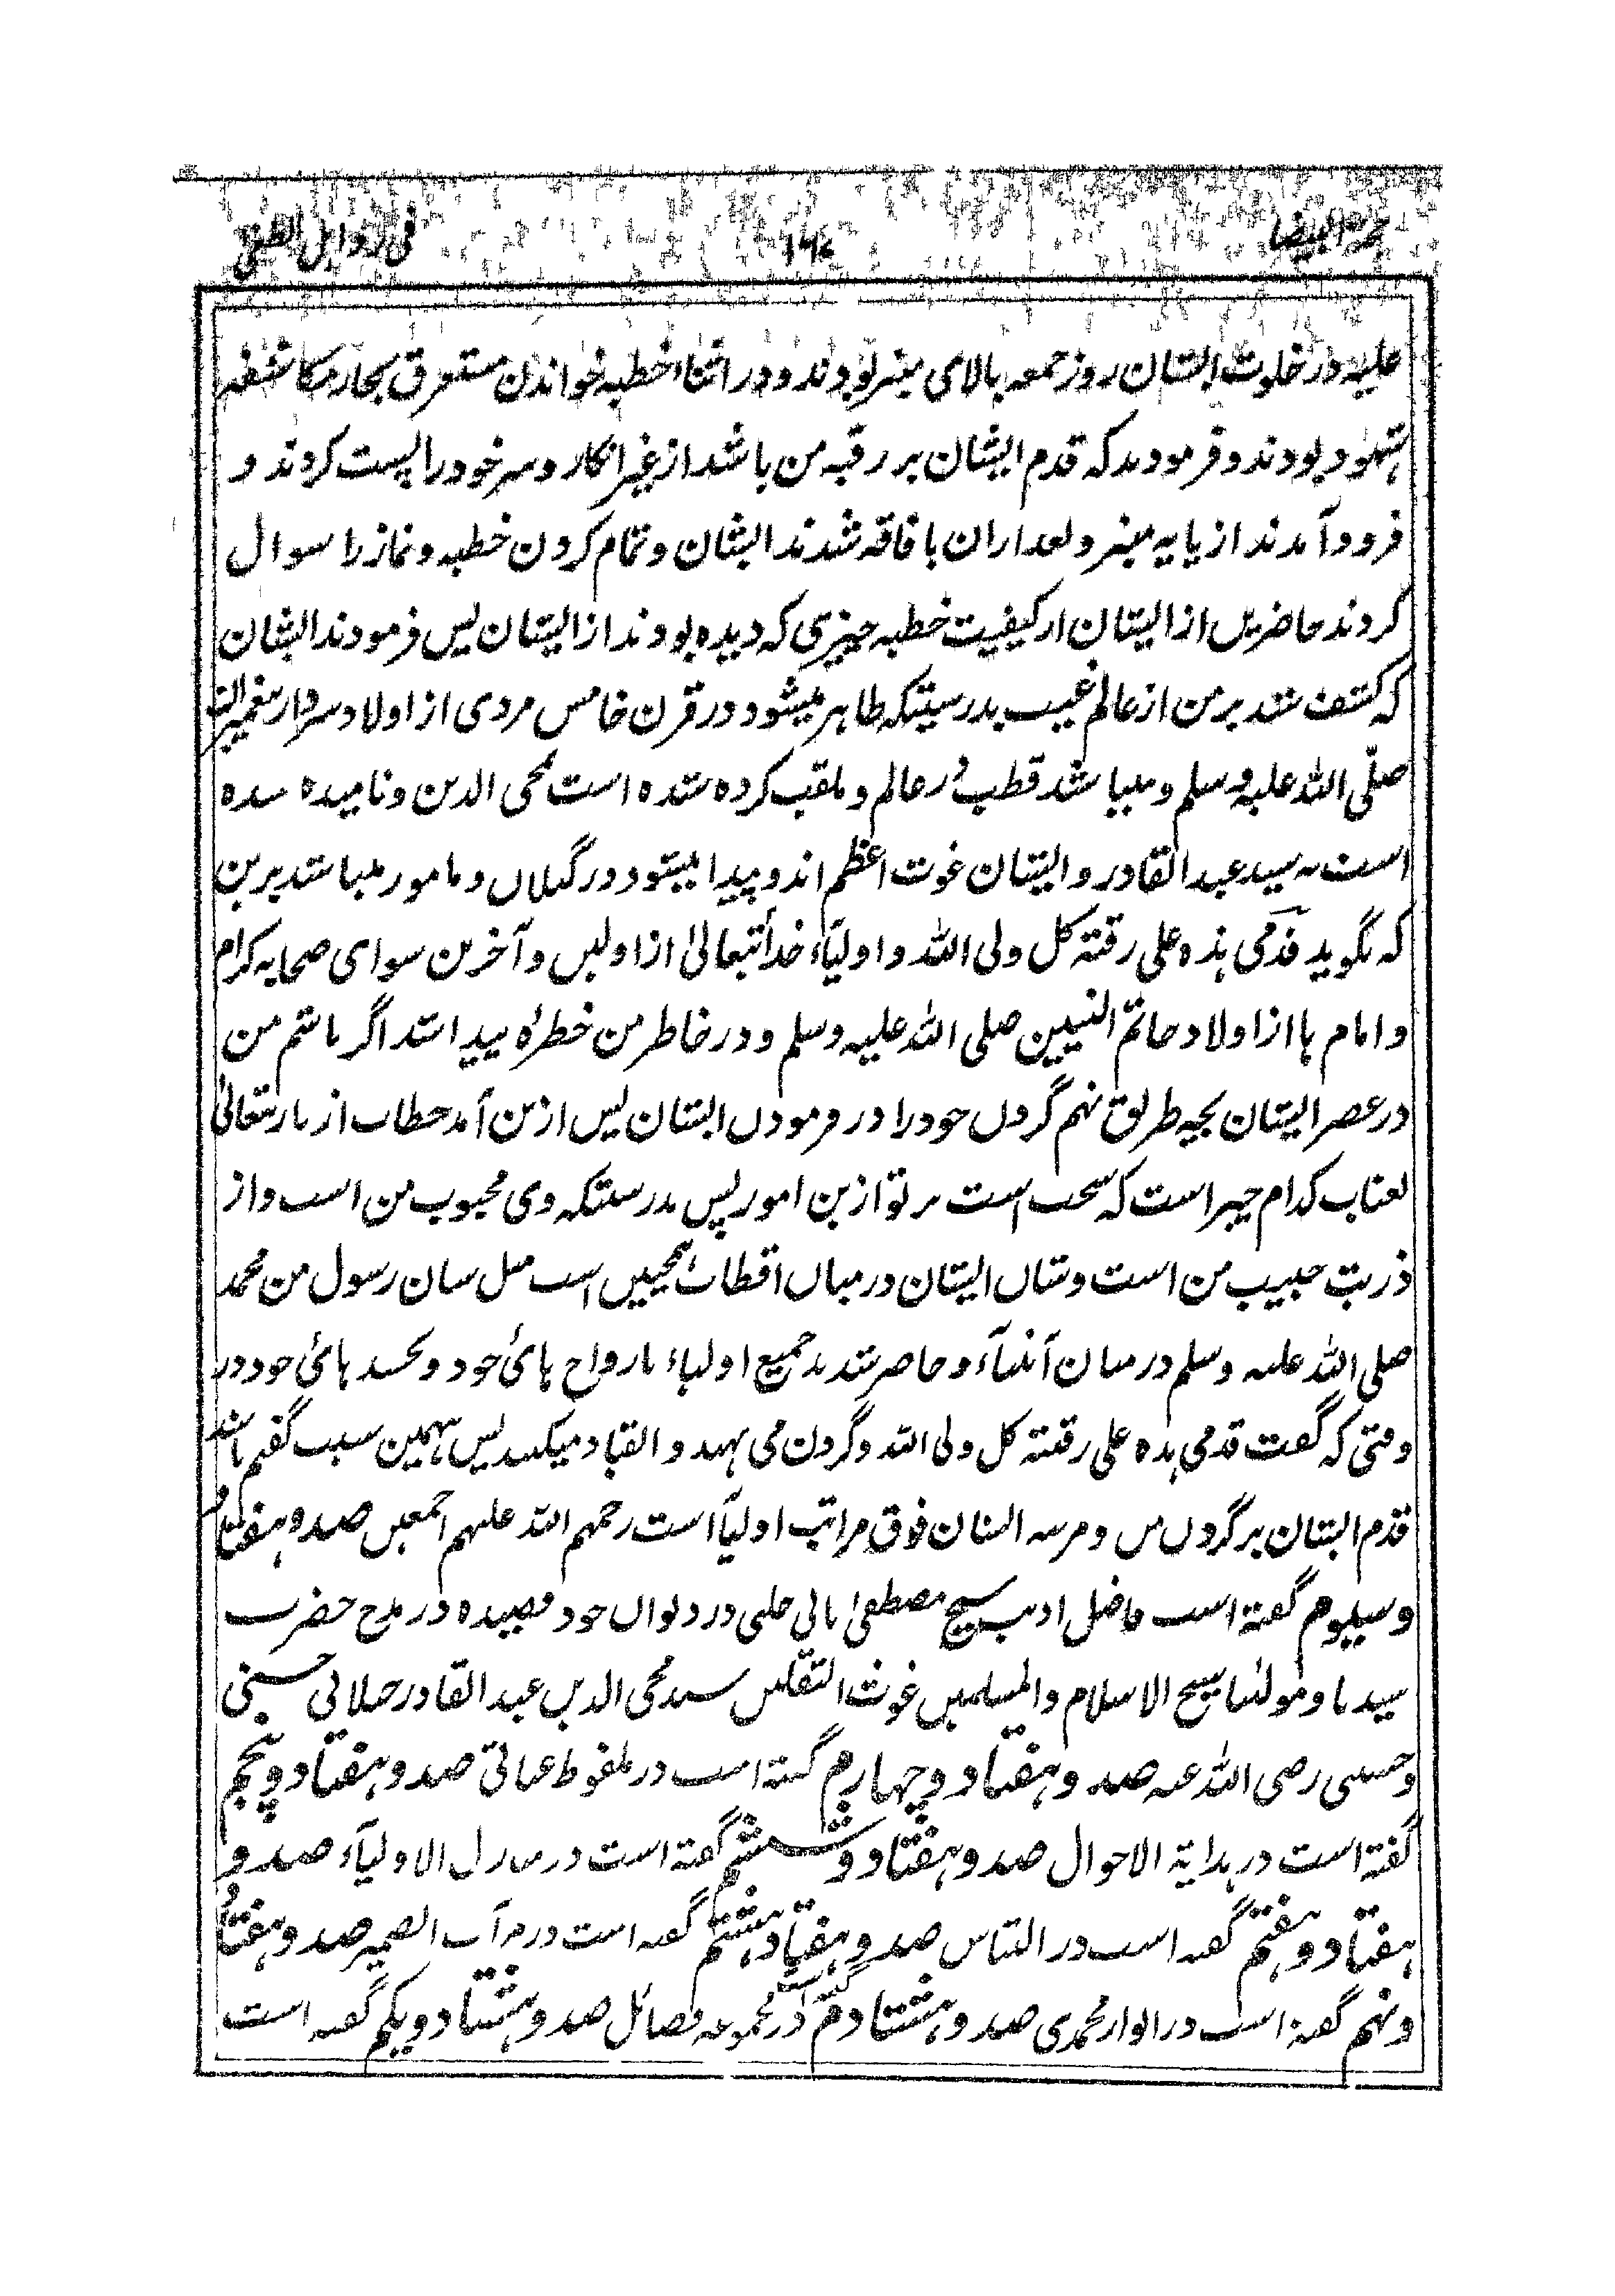 علیه در خلوت ایشان روز جمعه بالای منبر بودند و در اثناء خطبه خواندن مستغرق بحار مکاشفه
شهود بودند و فرمودند که قدم ایشان بر رقبه من باشد از غیر انکار و سر خود را پست کردند و
فرود آمدند از پایه منبر و بعد ازان بافاقه شدند ایشان و تمام کردن خطبه و نماز را سوال
کردند حاضرین از ایشان از کیفیت خطبه چیزی که دیده بودند از ایشان پس فرمودند ایشان
که کشف شد بر من از عالم غیب بدرستیکه ظاهر میشود در قرن خامس مردی از اولاد سردار پیغمبران
صلّی الله علیه وسلم و میباشد قطب در عالم و ملقب کرده شده است محی الدین و نامیده شده
است به سید عبد القادر و ایشان غوث اعظم اند و پیدا میشود در گیلان و مامور میباشد برین
که بگوید قدمی هذه علی رقبته کل ولی الله و اولیاء خدایتعالیٰ از اولین و آخرین سوای صحابه کرام
و امام ها از اولاد خاتم النبیین صلی الله علیه وسلم و در خاطر من خطره پیدا شد اگر باشم من
در عصر ایشان بچه طریق نهم گردن خود را در فرمودن ایشان پس ازین آمد خطاب از باریتعالیٰ
بعتاب کدام چیز است که سخت است بر تو ازین امور پس بدرستیکه وی محبوب من است و از
ذریت حبیب من است و شان ایشان در میان اقطاب محبین است مثل شان رسول من محمد
صلی الله علیه وسلم در میان انبیاء و حاضر شدند جمیع اولیاء بارواح هائ خود و بجسد هائ خود در
وقتی که گفت قدمی هذه علی رقبته کل ولی الله و گردن می نهند و انقیاد میکنند پس بهمین سبب گفتم باشد
قدم ایشان بر گردن من و مرتبه ایشان فوق مراتب اولیا است رحمهم الله علیهم اجمعین صد و هفتاد
و سیوم گفته است فاضل ادیب شیخ مصطفیٰ بابی حلبی در دیوان خود قصیده در مدح حضرت
سیدنا و مولانا شیخ الاسلام والمسلمین غوث الثقلین سید محی الدین عبد القادر جیلانی حسنی
و حسینی رضی الله عنه صد و هفتاد و چهارم گفته است در ملفوظ غیاثی صد و هفتاد و پنجم
گفته است در هدایة الاحوال صد و هفتاد و ششم گفته است در منازل الاولیاء صد و
هفتاد و هفتم گفته است در التباس صد و هفتاد و هشتم گفته است در مرآت الضمیر صد و هفتاد
و نهم گفته است در انوار محمدی صد و هشتادم گفته است در مجموعه فضائل صد و هشتاد و یکم گفته است